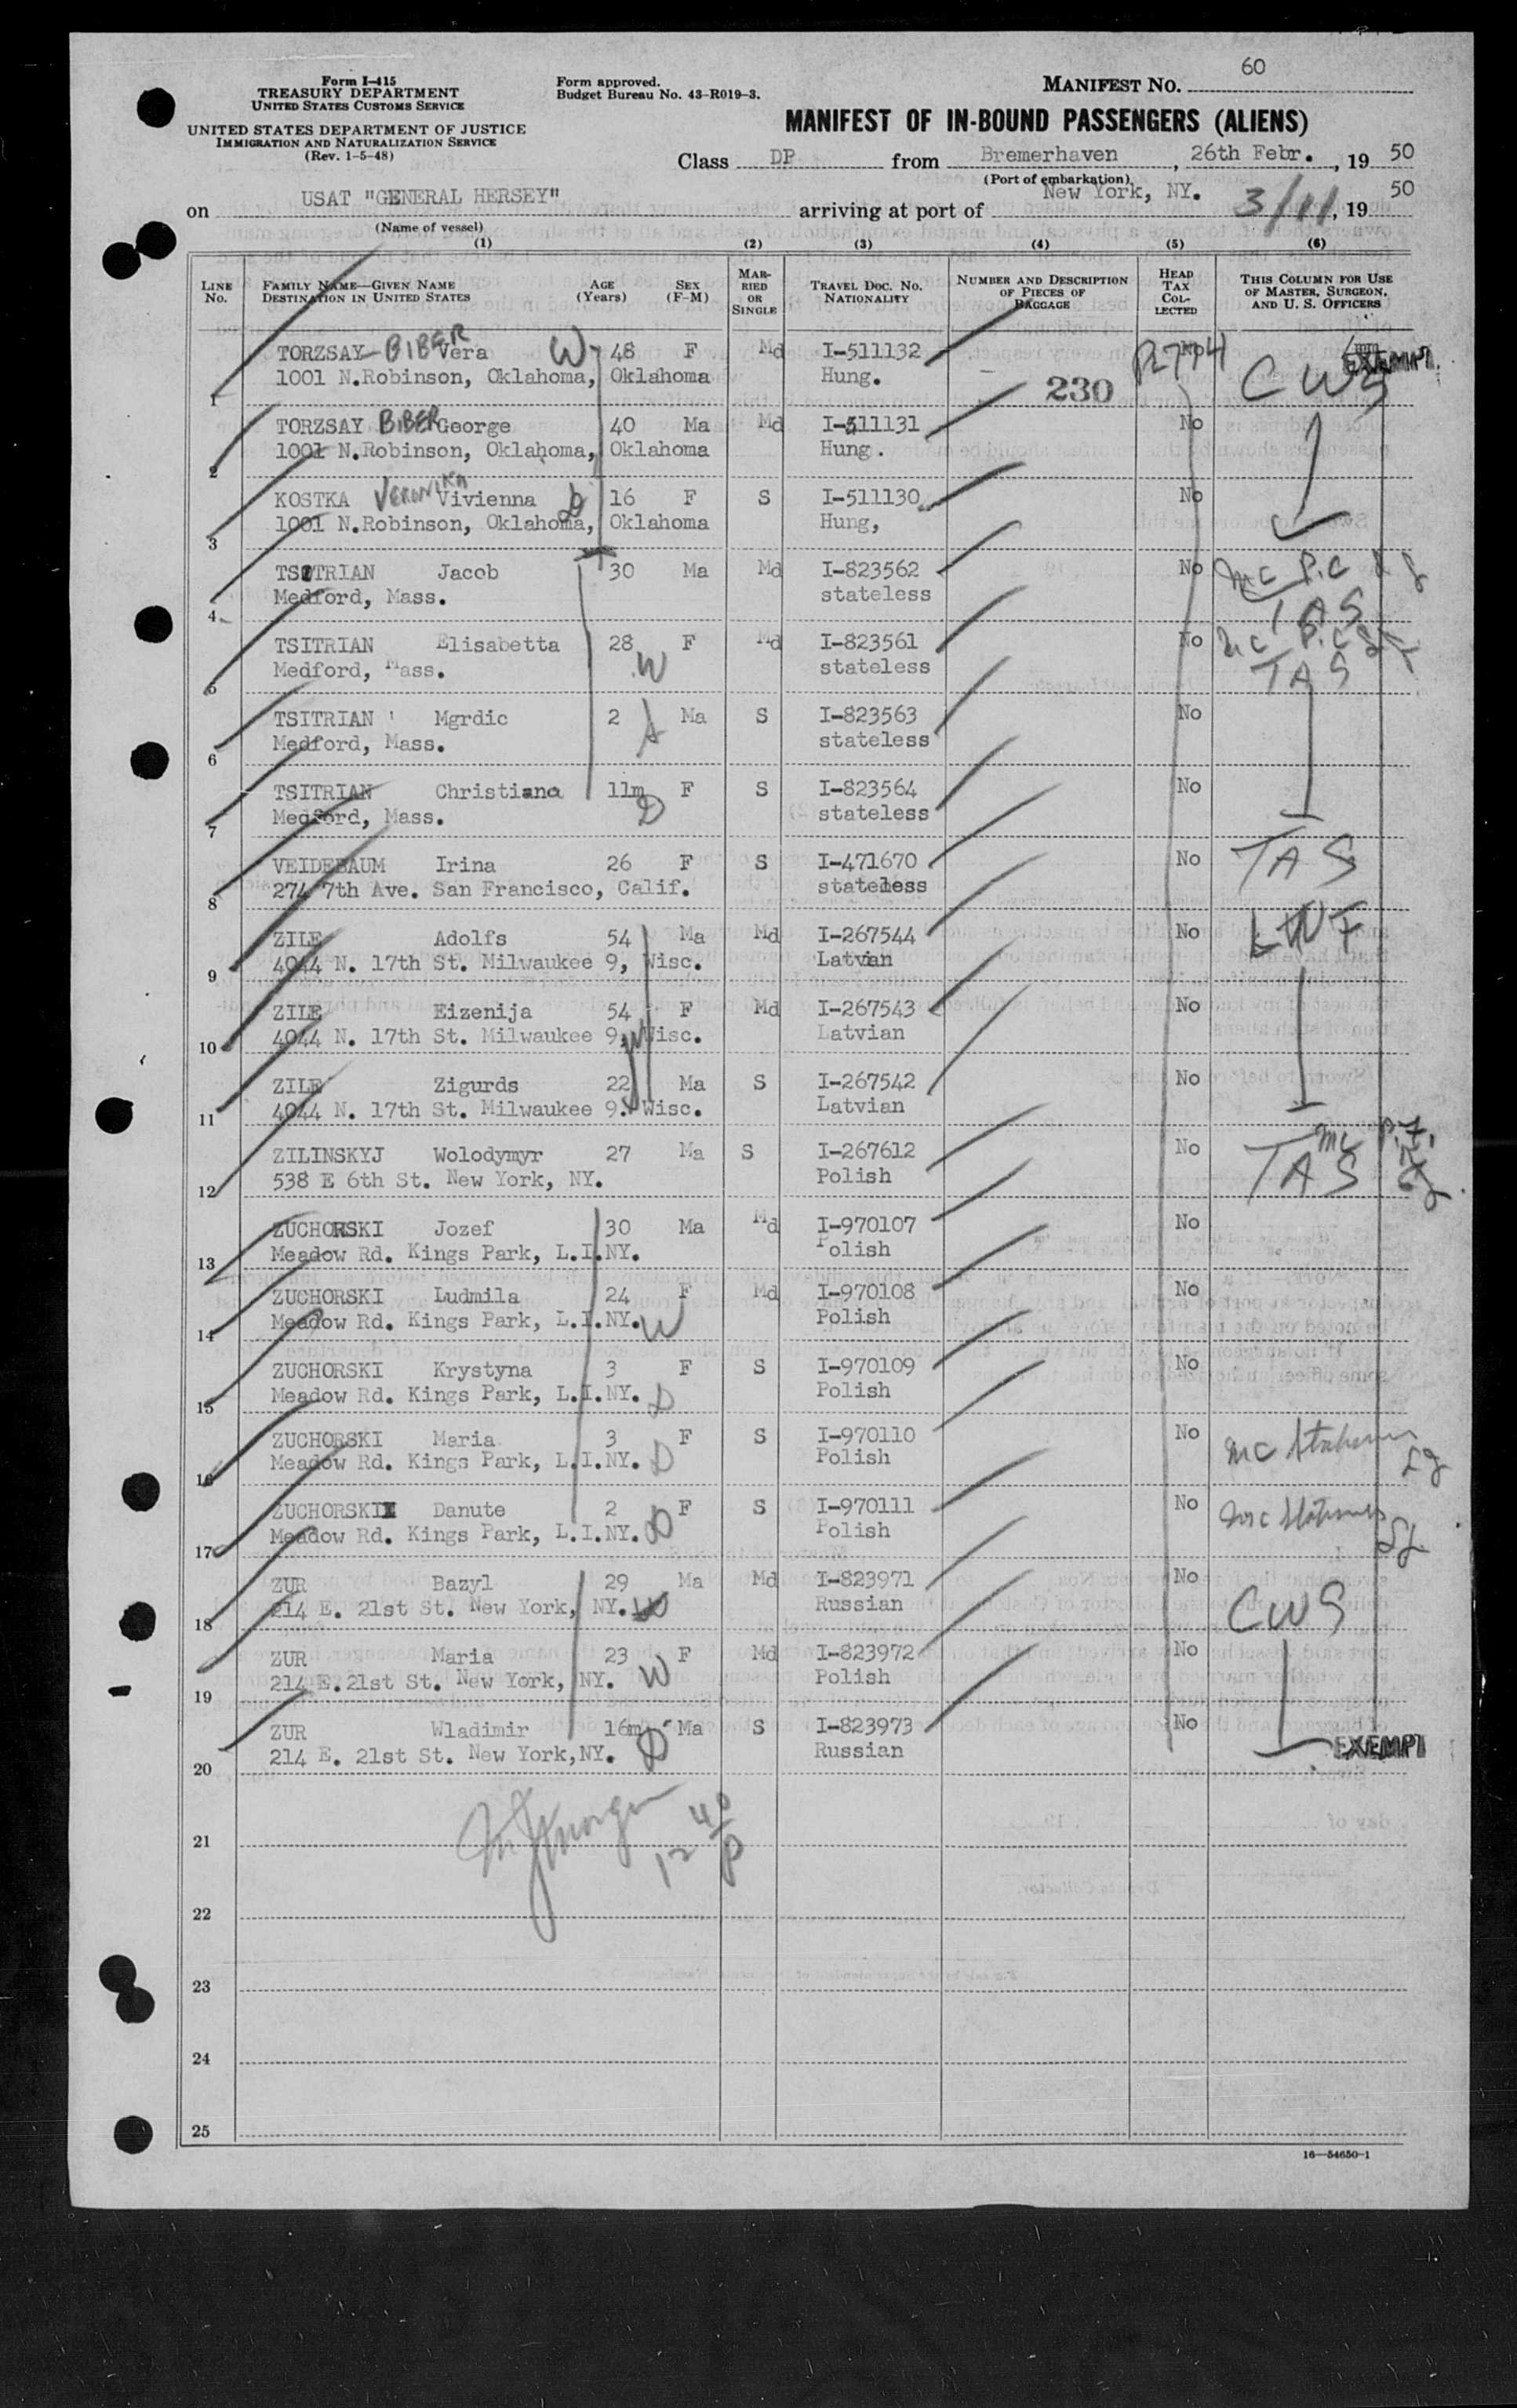 Form I-415
TREASURY DEPARTMENT
UNITED STATES CUSTOMS SERVICE
UNITED STATES DEPARTMENT OF JUSTICE
IMMIGRATION AND NATURALIZATION SERVICE
(Rev. 1-5-48)
Form approved.
Budget Bureau No. 43-R019-3.
MANIFEST NO. 60
MANIFEST OF IN-BOUND PASSENGERS (ALIENS)
Class DP from Bremerhaven, 26th Febr., 19 50
(Port of embarkation)
on USAT "GENERAL HERSEY" arriving at port of New York, NY. 3/11, 19 50
(Name of vessel)
(1) (2) (3) (4) (5) (6)
LINE No. FAMILY NAME—GIVEN NAME DESTINATION IN UNITED STATES AGE (Years) SEX (F-M) MARRIED OR SINGLE TRAVEL DOC. NO. NATIONALITY NUMBER AND DESCRIPTION OF PIECES OF BAGGAGE HEAD TAX COLLECTED THIS COLUMN FOR USE OF MASTER, SURGEON, AND U. S. OFFICERS
TORZSAY-BIBER Vera W 48 F Md I-511132 EXEMPT
1 1001 N.Robinson, Oklahoma, Oklahoma Hung. 230 CWS
TORZSAY BIBER George 40 Ma Md I-511131 No
2 1001 N.Robinson, Oklahoma, Oklahoma Hung.
KOSTKA VERONIKA Vivienna D 16 F S I-511130 No
3 1001 N.Robinson, Oklahoma, Oklahoma Hung,
TSITRIAN Jacob 30 Ma Md I-823562 No mc P.C
4 Medford, Mass. stateless TAS
TSITRIAN Elisabetta 28 F Md I-823561 No mc P.C
5 Medford, Mass. W stateless TAS
TSITRIAN Mgrdic 2 Ma S I-823563 No
6 Medford, Mass. stateless
TSITRIAN Christiana 11m F S I-823564 No
7 Medford, Mass. D stateless
VEIDEBAUM Irina 26 F S I-471670 No TAS
8 274 7th Ave. San Francisco, Calif. stateless
ZILE Adolfs 54 Ma Md I-267544 No LWF
9 4044 N. 17th St. Milwaukee 9, Wisc. Latvian
ZILE Eizenija 54 F Md I-267543 No
10 4044 N. 17th St. Milwaukee 9, Wisc. W Latvian
ZILE Zigurds 22 Ma S I-267542 No
11 4044 N. 17th St. Milwaukee 9. Wisc. Latvian
ZILINSKYJ Wolodymyr 27 Ma S I-267612 No mc
12 538 E 6th St. New York, NY. Polish TAS
ZUCHORSKI Jozef 30 Ma Md I-970107 No
13 Meadow Rd. Kings Park, L.I.NY. Polish
ZUCHORSKI Ludmila 24 F Md I-970108 No
14 Meadow Rd. Kings Park, L.I.NY. W Polish
ZUCHORSKI Krystyna 3 F S I-970109 No
15 Meadow Rd. Kings Park, L.I.NY. D Polish
ZUCHORSKI Maria 3 F S I-970110 No mc
16 Meadow Rd. Kings Park, L.I.NY. D Polish
ZUCHORSKI Danute 2 F S I-970111 No mc
17 Meadow Rd. Kings Park, L.I.NY. D Polish
ZUR Bazyl 29 Ma Md I-823971 No
18 214 E. 21st St. New York, NY. Russian CWS
ZUR Maria 23 F Md I-823972 No
19 214 E.21st St. New York, NY. W Polish
ZUR Wladimir 16m Ma S I-823973 No
20 214 E. 21st St. New York,NY. D Russian EXEMPT
21
22
23
24
25
16—54650-1